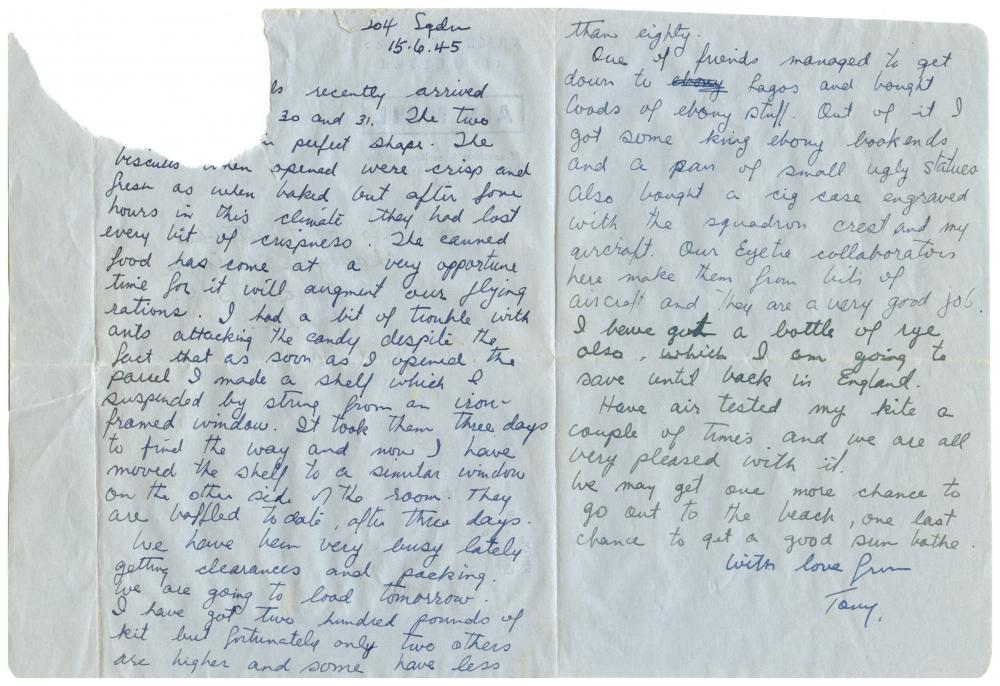 204 Sqdn
15.6.45
ls recently arrived
30 and 31. The two
perfect shape. The
biscuits when opened were crisp and
fresh as when baked but after four
hours in this climate they had lost
every bit of crispness. The canned
food has come at a very opportune
time for it will augment our flying
rations. I had a bit of trouble with
ants attacking the candy despite the
fact that as soon as I opened the
parcel I made a shelf which I
suspended by string from an iron-
framed window. It took them three days
to find the way and now I have
moved the shelf to a similar window
on the other side of the room. They
are baffled to date, after three days.
We have been very busy lately
getting clearances and packing.
We are going to load tomorrow.
I have got two hundred pounds of
kit but fortunately only two others
are higher and some have less
than eighty.
One of friends managed to get
down to ebony Lagos and bought
loads of ebony stuff. Out of it I
got some king ebony bookends
and a pair of small ugly statues
Also bought a cig case engraved
with the squadron crest and my
aircraft. Our Eyetie collaborators
here make them from bits of
aircraft and they are a very good job.
I have got a bottle of rye
also, which I am going to
save until back in England.
Have air tested my kite a
couple of times and we are all
very pleased with it.
We may get one more chance to
go out to the beach, one last
chance to get a good sun bathe.
With love from
Tony.